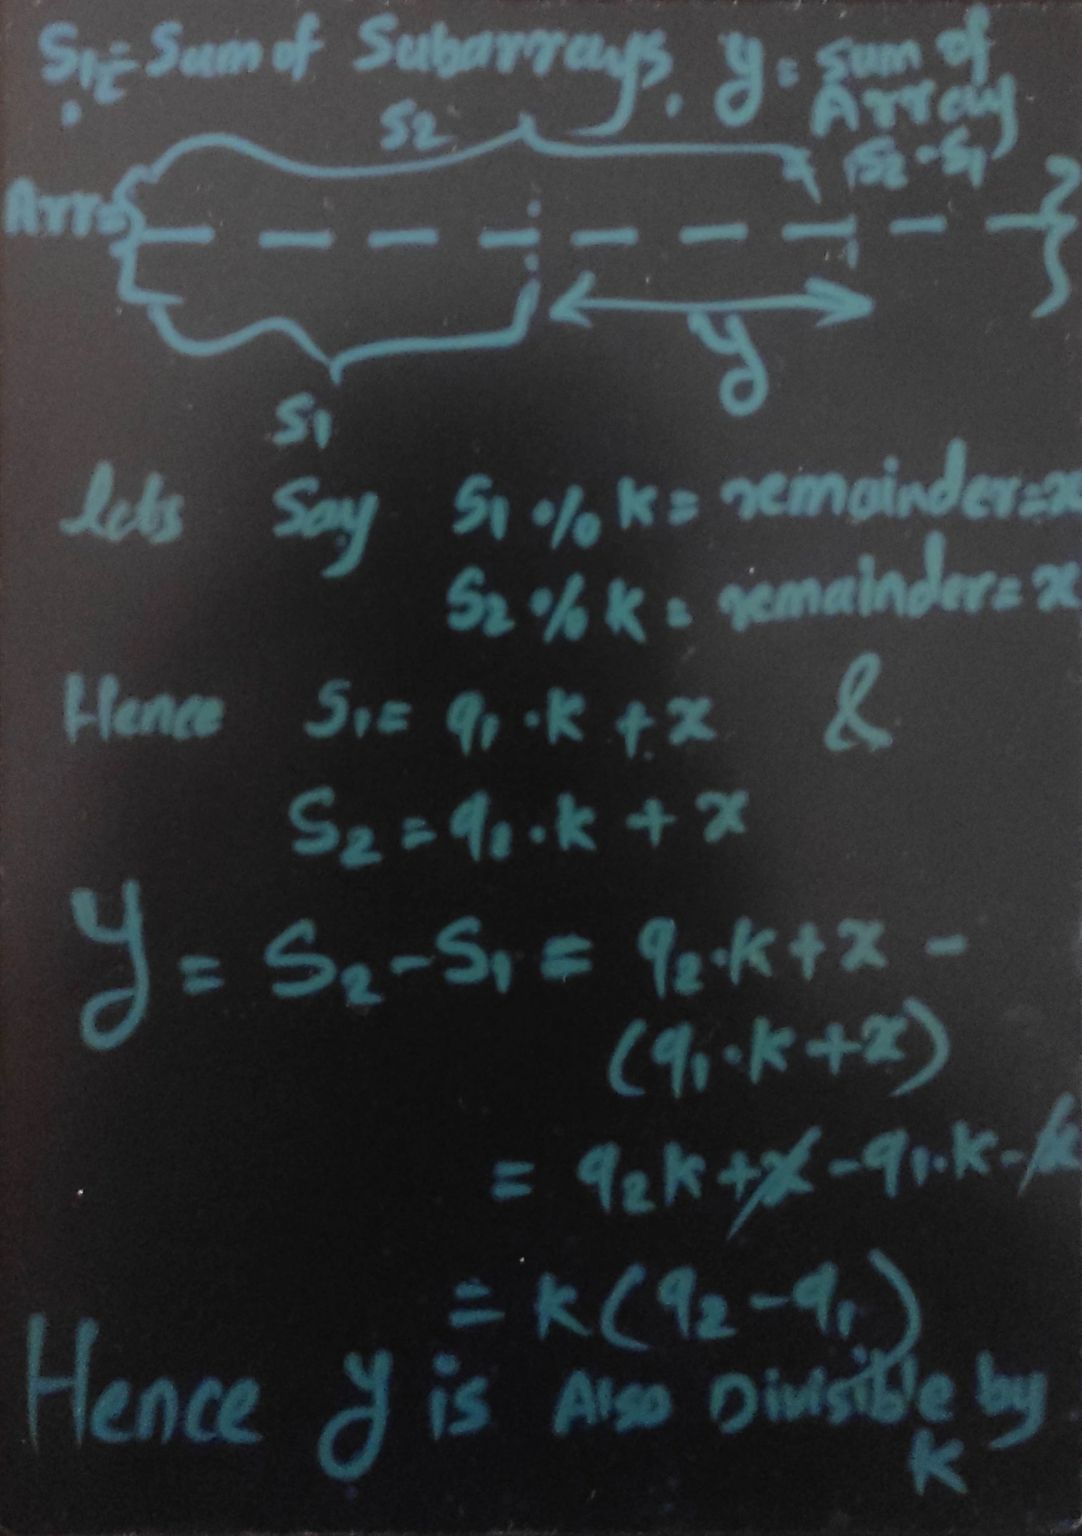 S₁,₂ = Sum of Subarrays, y = sum of Array
S2
S2 - S1
Arr
y
S1
lets Say S1 % K = remainder = x
S2 % K = remainder = x
Hence S1 = q1 · K + x &
S2 = q2 · K + x
y = S2 - S1 = q2 · K + x -
(q1 · K + x)
= q2 K + x - q1 · K - x
= K (q2 - q1)
Hence y is Also Divisible by K